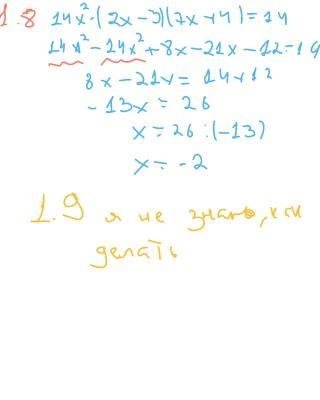 1.8 14x²-(2x-3)(7x+4)=14
14x²-14x²+8x-21x-12=14
8x-21x=14+12
-13x=26
x=26:(-13)
x=-2
1.9 я не знаю, как
делать